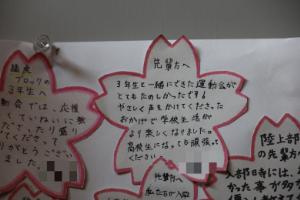 先輩方へ
3年生と一緒にできた運動会が
とてもたのしかったです!
やさしく声をかけてくださった
おかげで学校生活が
より楽しくなりました。
高校生になっても頑張って
ください。
ブロックの
3年生へ
動会では、応援
していねいに教
ださったり盛り
てくださって
りがとうござい
ました。
陸上部
の先輩方
入部日時には、
かった事が多
先輩方へ
私たちが入